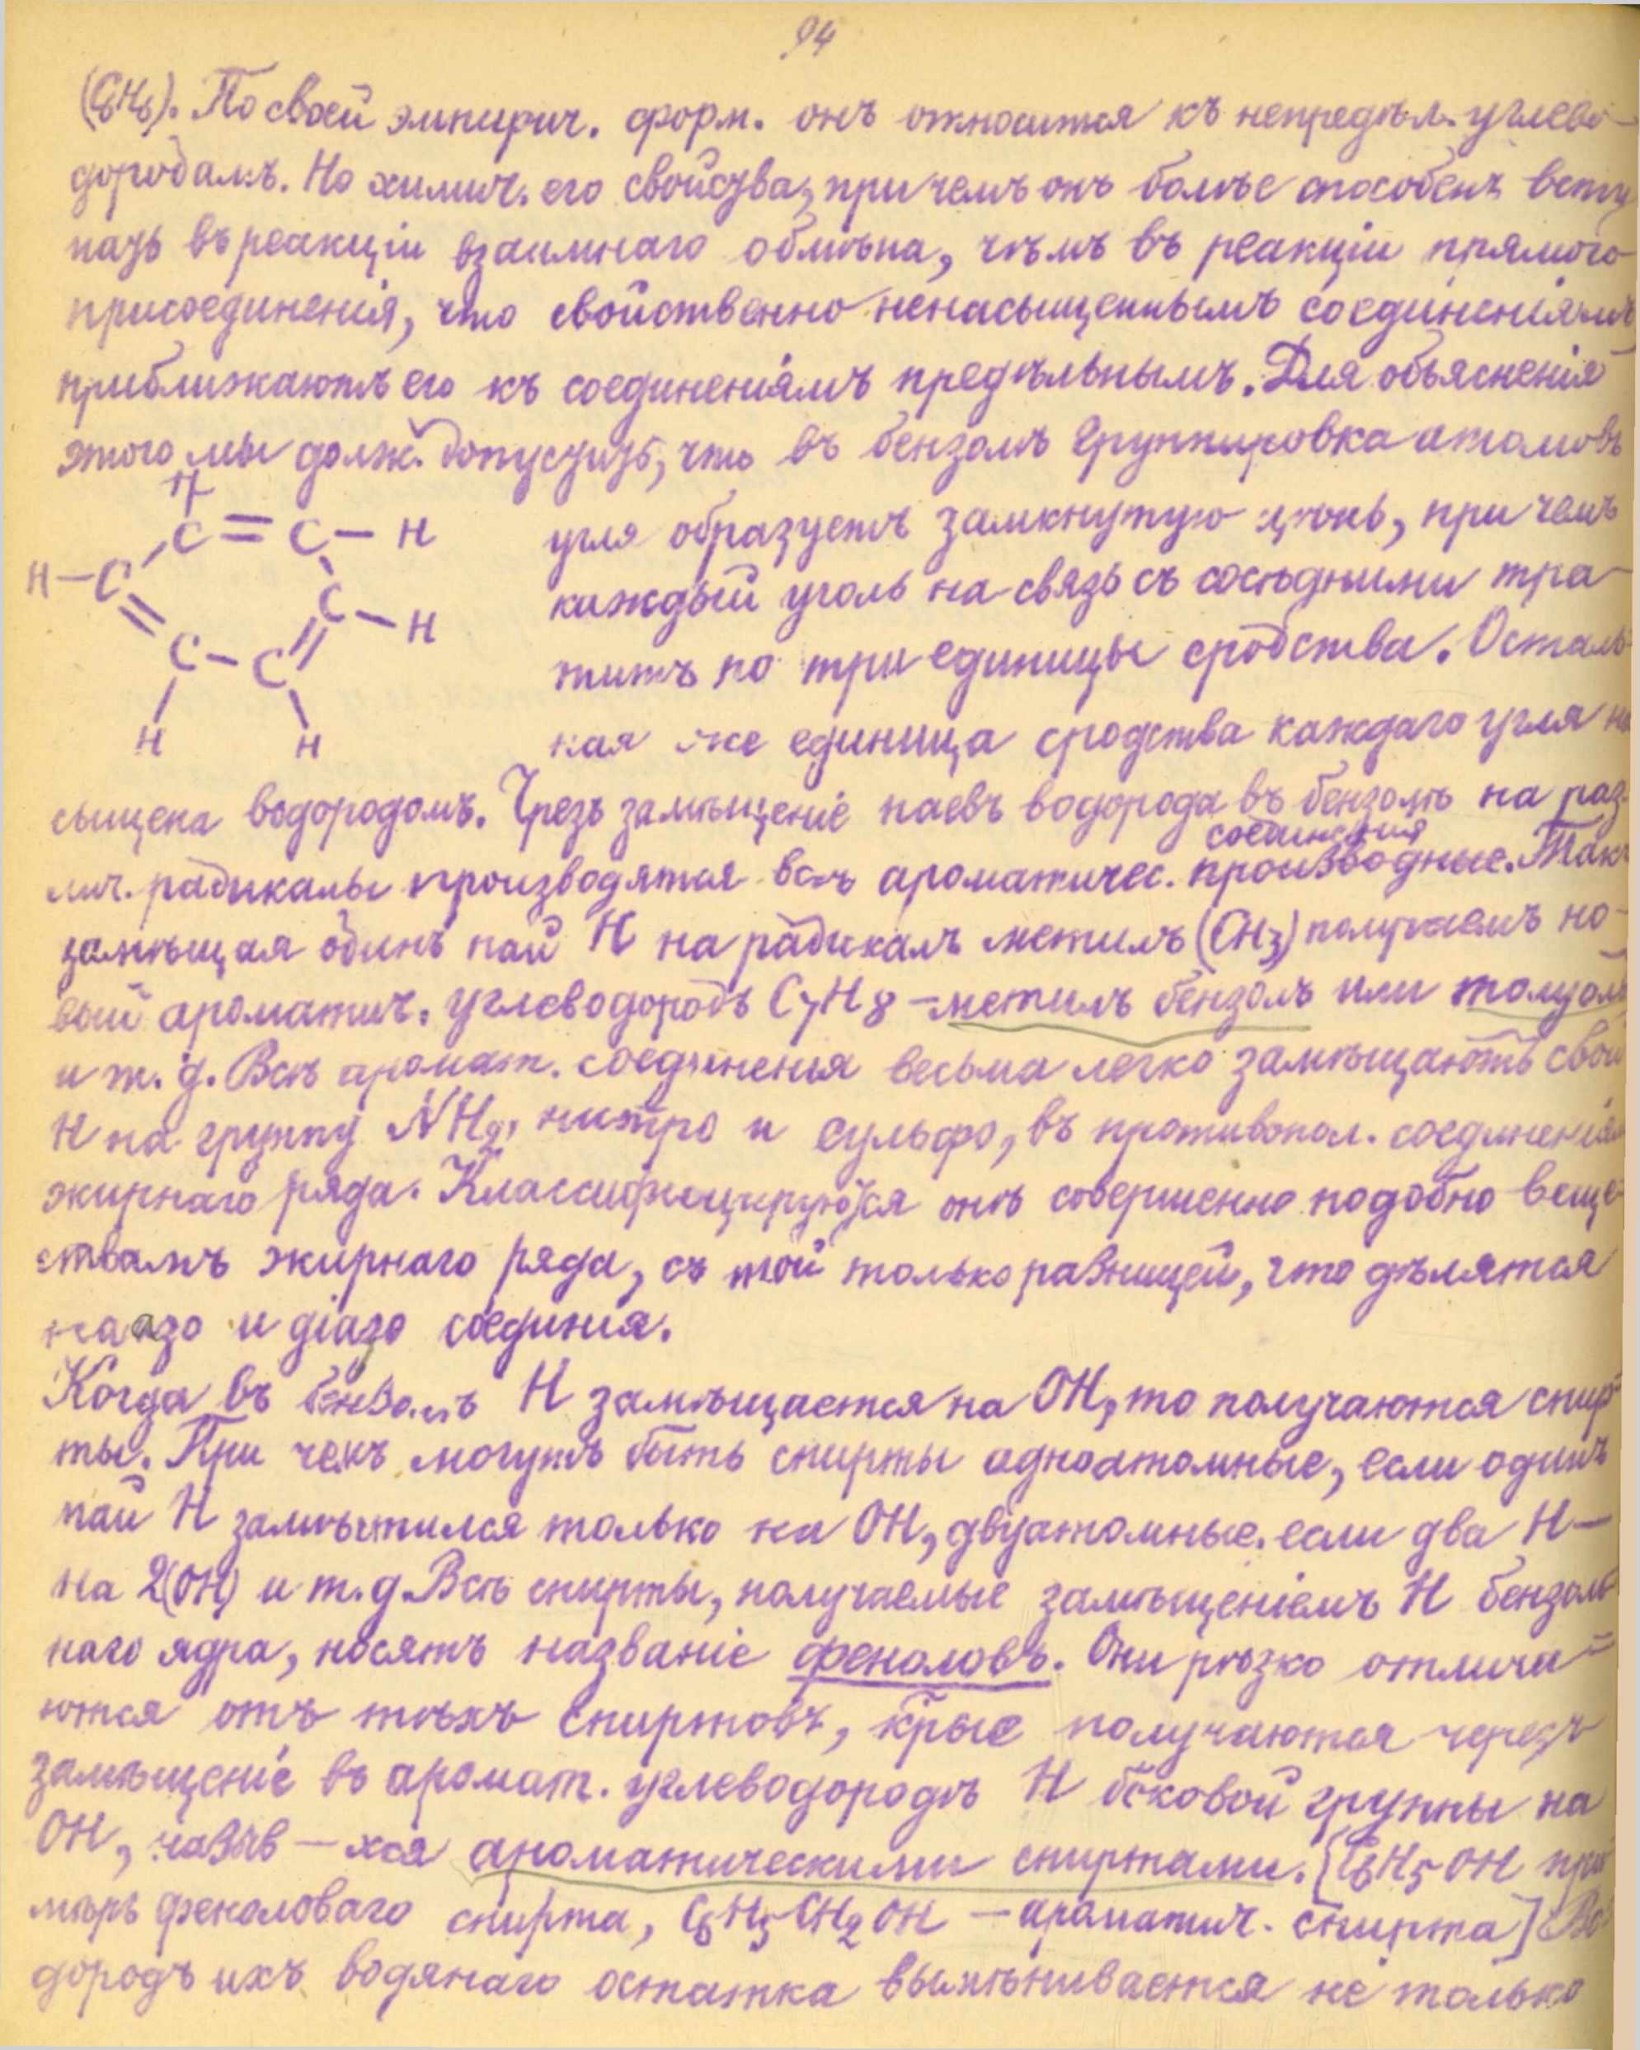 94
(C6H6). По своей эмпирич. форм. онъ относится къ непредѣл. углево-
дородамъ. Но химич. его свойства, при чемъ онъ болѣе способенъ всту
пать въ реакціи взаимнаго обмѣна, чѣмъ въ реакціи прямого
присоединенія, что свойственно ненасыщеннымъ соединеніямъ
приближаютъ его къ соединеніямъ предѣльнымъ. Для объясненія
этого мы долж. допустить, что въ бензолѣ группировка атомовъ
H
C = C - H
H - C
C - H
C - C
H H
угля образуетъ замкнутую цѣпь, при чемъ
каждый уголь на связь съ сосѣдними тра-
титъ по три единицы сродства. Осталь-
ная же единица сродства каждаго угля на
сыщена водородомъ. Чрезъ замѣщеніе паевъ водорода въ бензолѣ на раз-
соединения
лич. радикалы производятся всѣ ароматичес. производные. Такъ
замѣщая одинъ пай H на радикалъ метилъ (CH3) получаемъ но-
вый ароматич. углеводородъ C7H8 - метилъ бензолъ или толуолъ
и т. д. Всѣ аромат. соединенія весьма легко замѣщаютъ свой
H на группу NH2, нитро и сульфо, въ противопол. соединеніям
жирнаго ряда. Классифицируются онѣ совершенно подобно веще-
ствамъ жирнаго ряда, съ той только разницей, что дѣлятся
на азо и діазо соединія.
Когда въ бензолъ H замѣщается на OH, то получаются спир-
ты. При чемъ могутъ быть спирты одноатомные, если одинъ
пай H замѣстился только на OH, двуатомные. если два H —
на 2(OH) и т. д. Всѣ спирты, получаемые замѣщеніемъ H бензоль-
наго ядра, носятъ названіе феноловъ. Они рѣзко отлича-
ются отъ тѣхъ спиртовъ, крые получаются черезъ
замѣщеніе въ аромат. углеводородѣ H боковой группы на
OH, назыв — хся ароматическими спиртами. [C6H5OH при
мѣръ фенолового спирта, C6H5CH2OH — ароматич. спирта] Во
дородъ ихъ водянаго остатка вымѣнивается не только